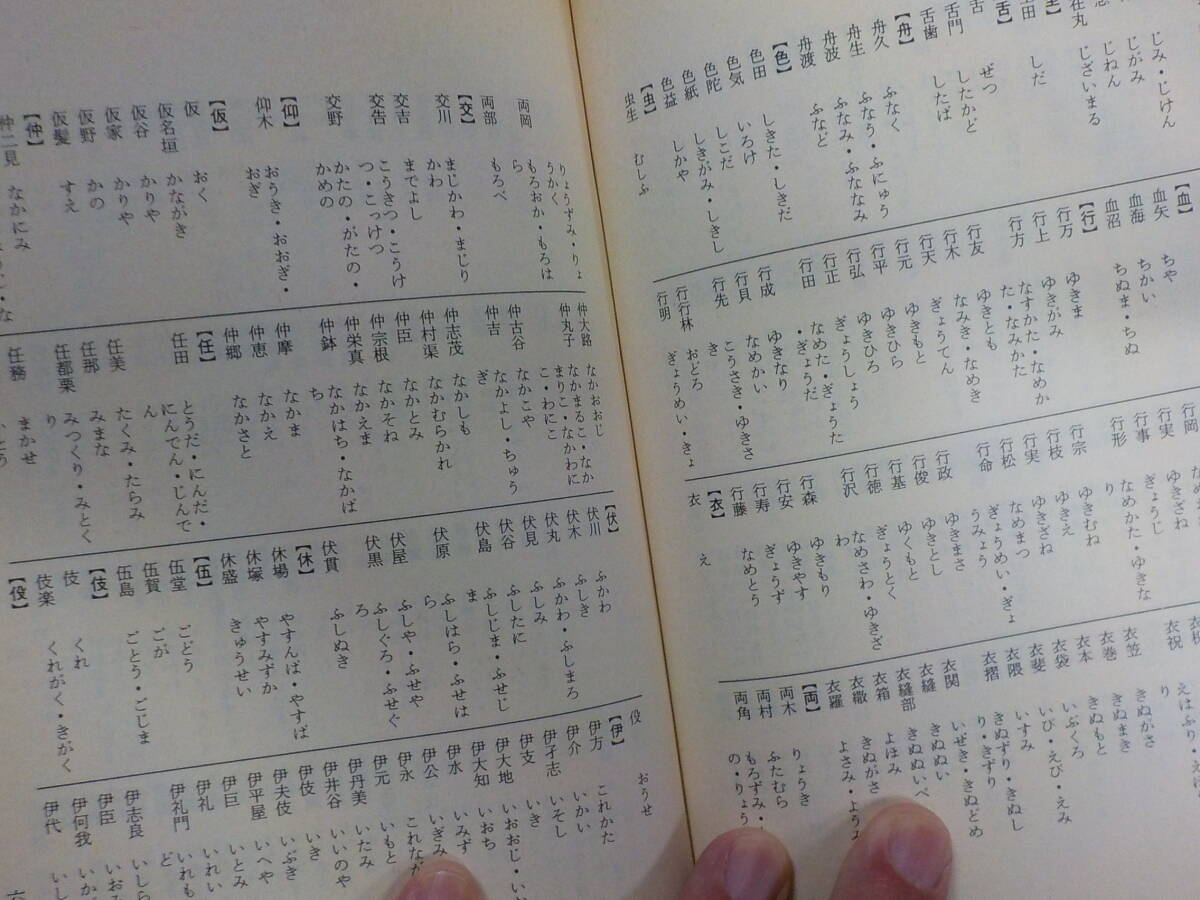 じみ・じけん
じがみ
じねん
在丸 じざいまる
田 しだ
【舌】
舌 ぜつ
舌門 したかど
舌歯 したば
【舟】
舟久 ふなく
舟生 ふなう・ふにゅう
舟波 ふなみ・ふななみ
舟渡 ふなど
【色】
色田 しきた・しきだ
色気 いろけ
色陀 しこだ
色紙 しきがみ・しきし
色益 しかや
【虫】
虫生 むしふ
【血】
血矢 ちや
血海 ちかい
血沼 ちぬま・ちぬ
【行】
行万 ゆきま
行上 ゆきがみ
行方 なすかた・なめか
た・なみかた
行友 ゆきとも
行木 なみき・なめき
行天 ぎょうてん
行元 ゆきもと
行平 ゆきひら
行弘 ゆきひろ
行正 ぎょうしょう
行田 なめた・ぎょうた
・ぎょうだ
行成 ゆきなり
行貝 なめかい
行先 こうさき・ゆきさ
き
行行林 おどろ
行明 ぎょうめい・ぎょ
行岡
行実 ゆきざね
行事 ぎょうじ
行形 なめかた・ゆきな
り
行宗 ゆきむね
行枝 ゆきえ
行実 ゆきざね
行松 なめまつ
行命 ぎょうめい・ぎょ
うみょう
行政 ゆきまさ
行俊 ゆきとし
行基 ゆくもと
行徳 ぎょうとく
行沢 なめさわ・ゆきざ
わ
行森 ゆきもり
行安 ゆきやす
行寿 ぎょうず
行藤 なめとう
【衣】
衣 え
衣祝 えはふり・
り
衣笠 きぬがさ
衣巻 きぬまき
衣本 きぬもと
衣袋 いぶくろ
衣斐 いび・えび・えみ
衣隈 いすみ
衣摺 きぬずり・きぬし
り・きずり
衣関 いせき・きぬどめ
衣縫 きぬぬい
衣縫部 きぬぬいべ
衣箱 よほみ
衣 きぬがさ
衣羅 よさみ・ようみ
【両】
両木 りょうき
両村 ふたむら
両角 もろずみ・
の・りょう
りょうずみ・りょ
うかく
両岡 もろおか・もろは
ら
両部 もろべ
【交】
交川 まじかわ・まじり
かわ
交吉 までよし
交告 こうきつ・こうけ
つ・こっけつ
交野 かたの・がたの・
かめの
【仰】
仰木 おうき・おおぎ・
おぎ
【仮】
仮 おく
仮名垣 かながき
仮谷 かりや
仮家 かりや
仮野 かの
仮髪 すえ
【仲】
仲二見 なかにみ
仲大路 なかおおじ
仲丸子 なかまるこ・なか
まりこ・なかわに
こ・わにこ
仲古谷 なかこや
仲吉 なかよし・ちゅう
ぎ
仲志茂 なかしも
仲村渠 なかむらかれ
仲臣 なかとみ
仲宗根 なかそね
仲栄真 なかえま
仲鉢 なかはち・なかば
ち
仲摩 なかま
仲恵 なかえ
仲郷 なかさと
【任】
任田 とうだ・にんだ・
にんでん・じんで
ん
任美 たくみ・たらみ
任那 みまな
任都栗 みつくり・みとく
り
任務 まかせ
【伏】
伏川 ふかわ
伏木 ふしき
伏丸 ふかわ・ふしまろ
伏見 ふしみ
伏谷 ふしたに
伏島 ふしじま・ふせじ
ま
伏原 ふしはら・ふせは
ら
伏屋 ふしや・ふせや
伏黒 ふしぐろ・ふせぐ
ろ
伏貫 ふしぬき
【休】
休場 やすんば・やすば
休塚 やすみずか
休盛 きゅうせい
【伍】
伍堂 ごどう
伍賀 ごが
伍島 ごとう・ごじま
【伎】
伎 くれ
伎楽 くれがく・きがく
【伇】
伇 おうせ
【伊】
伊方 これかた
伊介 いかい
伊孑志 いそし
伊支 いき
伊大地 いおおじ・い
伊大知 いおち
伊水 いみず
伊公 いぎみ
伊永 これなが
伊元 いもと
伊丹美 いたみ
伊井谷 いいのや
伊伎 いき
伊夫伎 いぶき
伊平屋 いへや
伊巨 いとみ
伊礼 いれい
伊礼門 いれも
ど
伊志良 いしら
伊臣 いおみ
伊何我 いか
伊代 いし